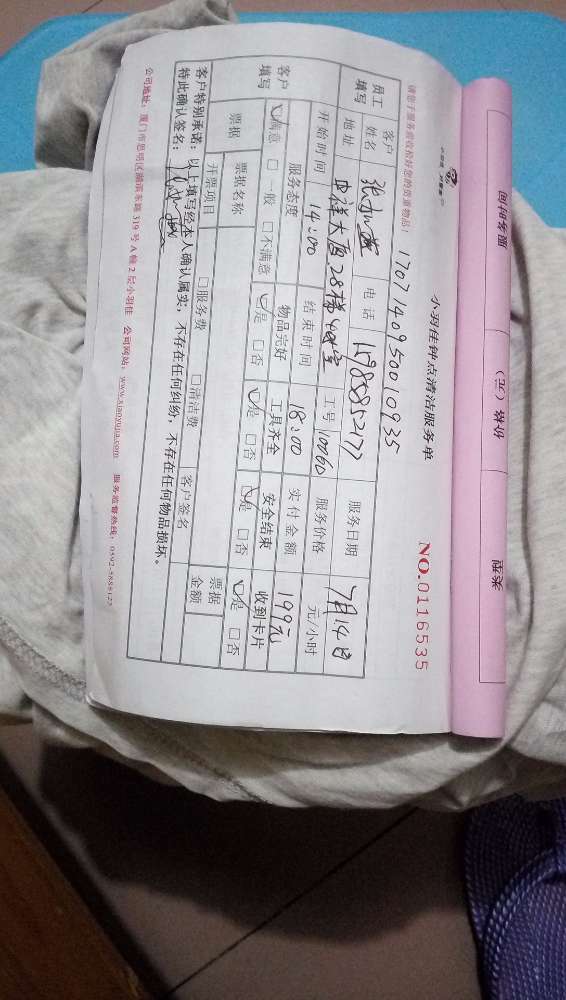 小羽佳钟点清洁服务单
NO.0116535
请您于服务前收拾好您的贵重物品!
1707140950010935
员工填写 客户姓名 电话 服务日期 7月14日
地址 工号 10060 服务价格 元/小时
开始时间 14:00 结束时间 18:00 实付金额 199元
客户填写 服务态度 物品完好 工具齐全 安全结束 收到卡片
☑满意 □一般 □不满意 ☑是 □否 ☑是 □否 ☑是 □否 ☑是 □否
票据 票据名称 票据金额
开票项目 □服务费 □清洁费 客户签名
客户特别承诺:以上填写经本人确认属实,不存在任何纠纷,不存在任何物品损坏。
特此确认签名:
公司地址:厦门市思明区湖滨东路319号A幢2层小羽佳 公司网站:www.xiaoyujia.com 服务监督热线:0592-5886123